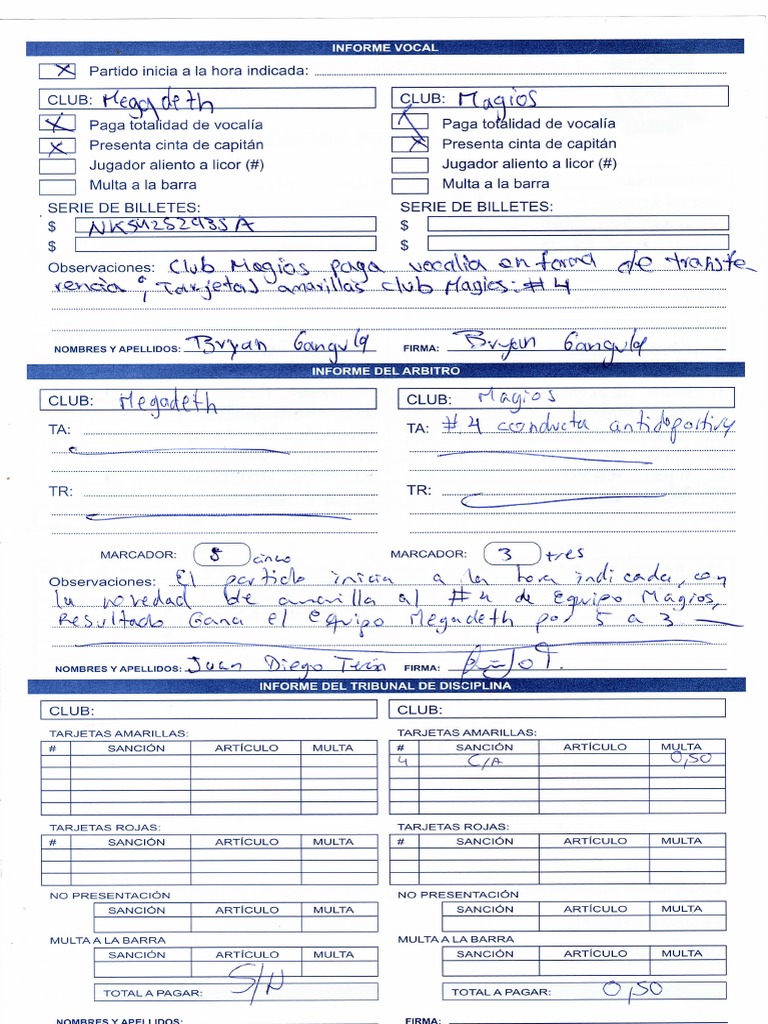 INFORME VOCAL
X Partido inicia a la hora indicada:
CLUB: Megadeth CLUB: Magios
X Paga totalidad de vocalía X Paga totalidad de vocalía
X Presenta cinta de capitán X Presenta cinta de capitán
Jugador aliento a licor (#) Jugador aliento a licor (#)
Multa a la barra Multa a la barra
SERIE DE BILLETES: SERIE DE BILLETES:
$ $
$ $
Observaciones: Club Magios paga vocalia en forma de transfe
rencia ; Tarjetas amarillas club Magios: #4
NOMBRES Y APELLIDOS: Bryan Gangula FIRMA: Bryan Gangula
INFORME DEL ARBITRO
CLUB: Megadeth CLUB: Magios
TA: TA: #4 conducta
TR: TR:
MARCADOR: 5 cinco MARCADOR: 3 tres
Observaciones: El partido inicia a la hora indicada, con
la novedad de amarilla al #4 de Equipo Magios,
Resultado Gana el equipo Megadeth por 5 a 3
NOMBRES Y APELLIDOS: Juan Diego Terán FIRMA:
INFORME DEL TRIBUNAL DE DISCIPLINA
CLUB: CLUB:
TARJETAS AMARILLAS: TARJETAS AMARILLAS:
# SANCIÓN ARTÍCULO MULTA # SANCIÓN ARTÍCULO MULTA
4 C/A 0,50
TARJETAS ROJAS: TARJETAS ROJAS:
# SANCIÓN ARTÍCULO MULTA # SANCIÓN ARTÍCULO MULTA
NO PRESENTACIÓN NO PRESENTACIÓN
SANCIÓN ARTÍCULO MULTA SANCIÓN ARTÍCULO MULTA
MULTA A LA BARRA MULTA A LA BARRA
SANCIÓN ARTÍCULO MULTA SANCIÓN ARTÍCULO MULTA
TOTAL A PAGAR: S/N TOTAL A PAGAR: 0,50
NOMBRES Y APELLIDOS: FIRMA: